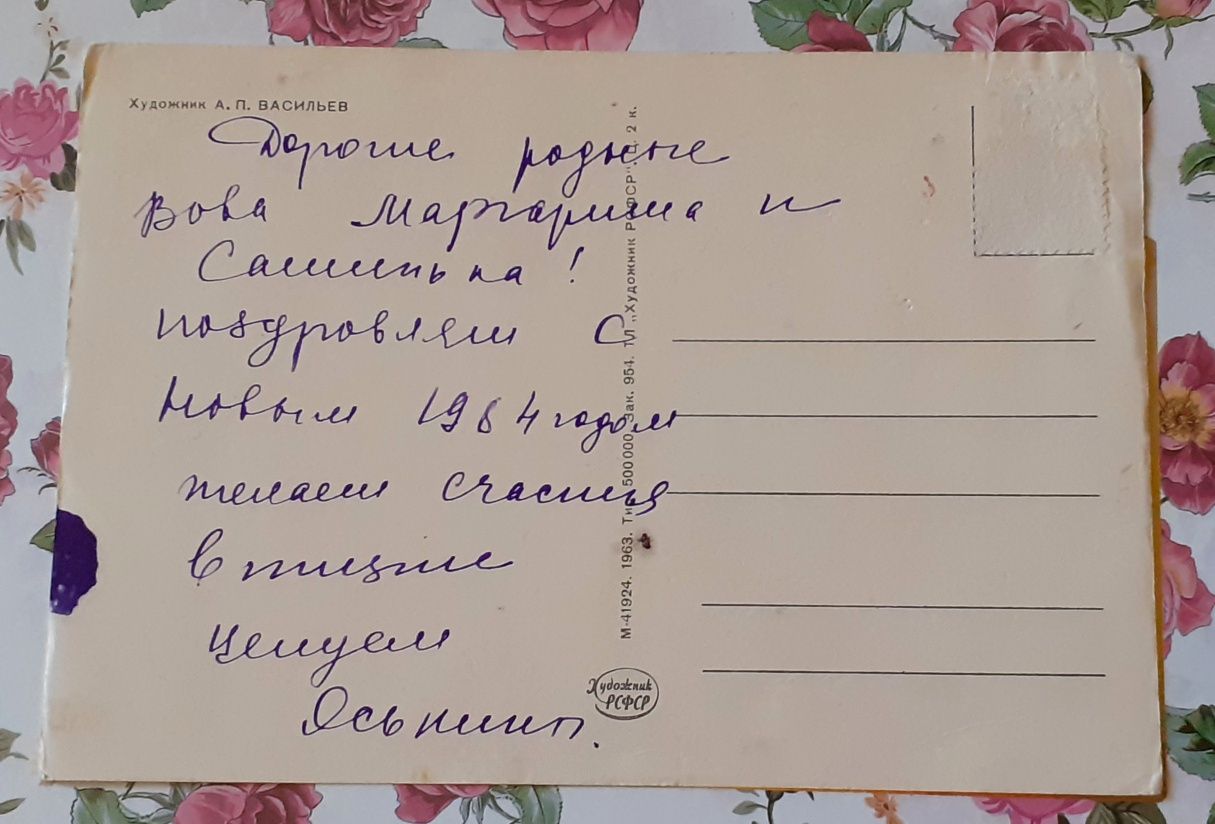 Художник А. П. ВАСИЛЬЕВ
Дорогие родные
Вова Маргарита и
Сашинька!
поздровляем С
Новым 1964 годом
желаем счастия
в жизне
целуем
М-41924. 1963. Тир. 500000. Зак. 954. ТЛ „Художник РСФСР". Ц. 2 к.
Художник
РСФСР